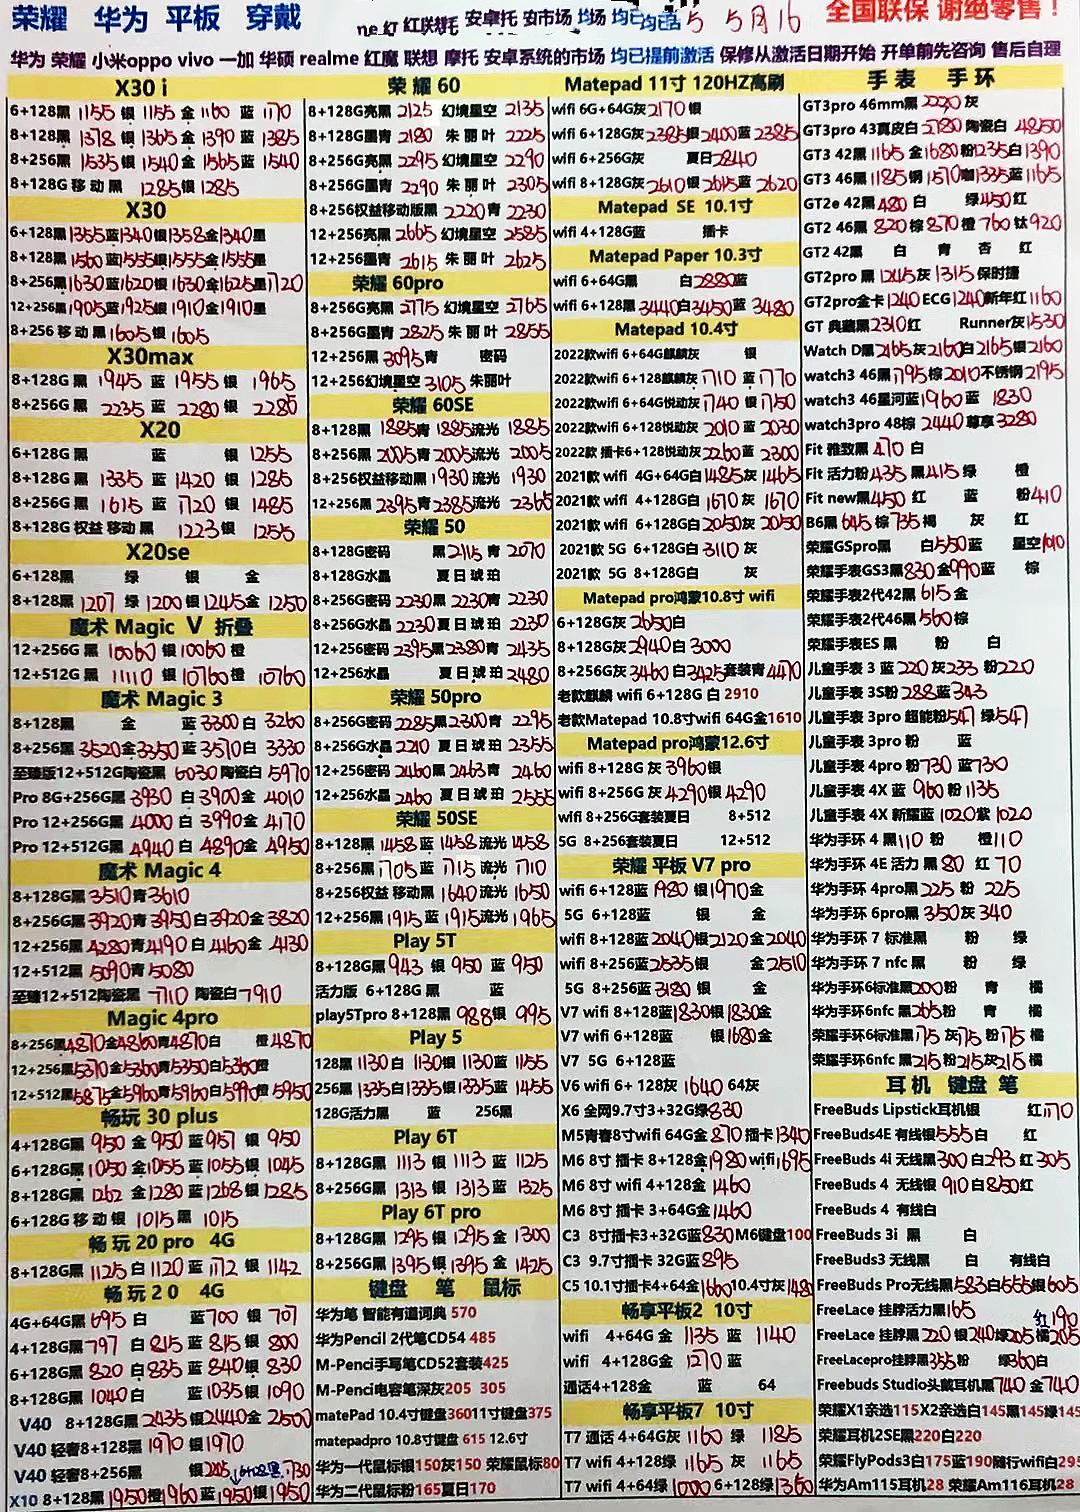 荣耀 华为 平板 穿戴
5 5月16
全国联保 谢绝零售！
华为 荣耀 小米oppo vivo 一加 华硕 realme 红魔 联想 摩托 安卓系统的市场 均已提前激活 保修从激活日期开始 开单前先咨询 售后自理
X30 i
6+128黑 1155 银 1155 金 1160 蓝 1170
8+128黑 1378 银 1365 金 1390 蓝 1385
8+256黑 1535 银 1540 金 1565 蓝 1540
8+128G 移动 黑 1285 银 1285
X30
6+128黑 1355 蓝 1340 银 1358 金 1340 墨
8+128黑 1560 蓝 1555 银 1555 金 1555 墨
8+256黑 1630 蓝 1620 银 1630 金 1625 墨 1720
12+256黑 1905 蓝 1925 银 1910 金 1910 墨
8+256 移动 黑 1605 银 1605
X30max
8+128G 黑 1945 蓝 1955 银 1965
8+256G 黑 2235 蓝 2280 银 2280
X20
6+128G 黑 蓝 银 1255
8+128G 黑 1335 蓝 1420 银 1285
8+256G 黑 1615 蓝 1720 银 1485
8+128G 权益 移动 黑 1223 银 1255
X20se
6+128黑 绿 银 金
8+128黑 1207 绿 1200 银 1245 金 1250
魔术 Magic V 折叠
12+256G 黑 10060 银 10060 橙
12+512G 黑 11110 银 10760 橙 10760
魔术 Magic 3
8+128黑 金 蓝 3300 白 3260
8+256黑 3520 金 3350 蓝 3510 白 3330
至臻版12+512G陶瓷黑 6030 陶瓷白 5970
Pro 8G+256G黑 3930 白 3900 金 4010
Pro 12+256G黑 4000 白 3990 金 4170
Pro 12+512G黑 4940 白 4890 金 4950
魔术 Magic 4
8+128G黑 3510 青 3610
8+256G黑 3920 青 3950 白 3920 金 3820
12+256黑 4280 青 4190 白 4160 金 4130
12+512黑 5090 青 5080
至臻12+512陶瓷黑 7710 陶瓷白 7910
Magic 4pro
8+256黑 4870 金 4860 青 4870 白 橙 4870
12+256黑 5370 金 5360 青 5350 白 5360 橙
12+512黑 5875 金 5960 青 5960 白 5990 橙 5950
畅玩 30 plus
4+128G黑 950 金 950 蓝 957 银 950
6+128G黑 1050 金 1055 蓝 1055 银 1045
8+128G黑 1262 金 1280 蓝 1268 银 1285
6+128G 移动 银 1015 黑 1015
畅 玩 20 pro 4G
8+128G黑 1125 白 1120 蓝 1172 银 1142
畅 玩 2 0 4G
4G+64G黑 695 白 蓝 700 银 707
4+128G黑 797 白 815 蓝 815 银 800
6+128G黑 820 白 835 蓝 840 银 830
8+128G黑 1040 白 蓝 1035 银 1090
V40 8+128G黑 2435 银 2440 金 2500
V40 轻奢8+128黑 1970 银 1970
V40 轻奢8+256黑 银 205 6+128黑 1730
X10 8+128黑 1950 橙 1960 蓝 1950 银 1950
荣 耀 60
8+128G亮黑 2125 幻境星空 2135
8+128G墨青 2180 朱 丽 叶 2225
8+256G亮黑 2295 幻境星空 2290
8+256G墨青 2290 朱 丽 叶 2305
8+256权益移动版黑 2220 青 2230
12+256亮黑 2665 幻境星空 2585
12+256墨青 2615 朱 丽 叶 2625
荣耀 60pro
8+256G亮黑 2775 幻境星空 2765
8+256G墨青 2825 朱 丽 叶 2855
12+256黑 3095 青 密码
12+256幻境星空 3105 朱丽叶
荣耀 60SE
8+128黑 1885 青 1885 流光 1885
8+256黑 2005 青 2005 流光 2005
8+256权益移动黑 1930 流光 1930
12+256黑 2395 青 2385 流光 2365
荣耀 50
8+128G密码 黑 2115 青 2070
8+128G水晶 夏日琥珀
8+256G密码 2230 黑 2230 青 2230
8+256G水晶 2230 夏日琥珀 2230
12+256密码 2395 黑 2380 青 2435
12+256水晶 夏日琥珀 2480
荣耀 50pro
8+256G密码 2285 黑 2300 青 2295
8+256G水晶 2210 夏日琥珀 2355
12+256密码 2460 黑 2463 青 2460
12+256水晶 2460 夏日琥珀 2555
荣耀 50SE
8+128黑 1458 蓝 1458 流光 1458
8+256黑 1705 蓝 1715 流光 1710
8+256权益 移动黑 1640 流光 1650
12+256黑 1915 蓝 1915 流光 1965
Play 5T
8+128G黑 943 银 950 蓝 950
活力版 6+128G 黑 蓝
play5Tpro 8+128黑 988 银 995
Play 5
128黑 1130 白 1130 银 1130 蓝 1155
256黑 1335 白 1335 银 1335 蓝 1455
128G活力黑 蓝 256黑
Play 6T
8+128G黑 1113 银 1113 蓝 1125
8+256G黑 1313 银 1313 蓝 1325
Play 6T pro
8+128G黑 1295 银 1295 金 1300
8+256G黑 1395 银 1395 金 1425
键盘 笔 鼠标
华为笔 智能有道词典 570
华为Pencil 2代笔CD54 485
M-Penci手写笔CD52套装425
M-Penci电容笔深灰205 305
matePad 10.4寸键盘36011寸键盘375
matepadpro 10.8寸键盘 615 12.6寸
华为一代鼠标银150灰150 荣耀鼠标80
华为二代鼠标粉165夏日170
Matepad 11寸 120HZ高刷
wifi 6G+64G灰 2170 银
wifi 6+128G灰 2385 银 2400 蓝 2385
wifi 6+256G灰 夏日 2840
wifi 8+128G灰 2610 银 2615 蓝 2620
Matepad SE 10.1寸
wifi 4+128G蓝 插卡
Matepad Paper 10.3寸
wifi 6+64G黑 白 2880 蓝
wifi 6+128黑 3440 白 3450 蓝 3480
Matepad 10.4寸
2022款wifi 6+64G麒麟灰 银
2022款wifi 6+128麒麟灰 1710 蓝 1770
2022款wifi 6+64G悦动灰 1740 银 1750
2022款wifi 6+128悦动灰 2010 蓝 2030
2022款 插卡6+128悦动灰 2260 蓝 2300
2021款wifi 4G+64G白 1485 灰 1465
2021款wifi 4+128G白 1670 灰 1670
2021款wifi 6+128G白 2050 灰 2050
2021款 5G 6+128G白 3110 灰
2021款 5G 8+128G白 灰
Matepad pro鸿蒙10.8寸 wifi
6+128G灰 2650 白
8+128G灰 2940 白 3000
8+256G灰 3460 白 3425 套装青 4470
老款麒麟 wifi 6+128G 白 2910
老款Matepad 10.8寸wifi 64G金1610
Matepad pro鸿蒙12.6寸
wifi 8+128G 灰 3960 银
wifi 8+256G 灰 4290 银 4290
wifi 8+256G套装夏日 8+512
5G 8+256套装夏日 12+512
荣耀 平板 V7 pro
wifi 6+128蓝 1980 银 1970 金
5G 6+128蓝 银 金
wifi 8+128蓝 2040 银 2120 金 2040
wifi 8+256蓝 2535 银 金 2510
5G 8+256蓝 3180 银 金
V7 wifi 8+128蓝 1830 银 1830 金
V7 wifi 6+128蓝 银 1680 金
V7 5G 6+128蓝
V6 wifi 6+ 128灰 1640 64灰
X6 全网9.7寸3+32G绿 830
M5青春8寸wifi 64G金 870 插卡 1340
M6 8寸 插卡 8+128金 1980 wifi 1695
M6 8寸 wifi 4+128金 1460
M6 8寸 插卡 3+64G金 1460
C3 8寸插卡3+32G蓝 830 M6键盘100
C3 9.7寸插卡 32G蓝 895
C5 10.1寸插卡4+64金 1660 10.4寸灰 1480
畅享平板2 10寸
wifi 4+64G 金 1135 蓝 1140
wifi 4+128G金 1270 蓝
通话4+128金 蓝 64
畅享平板7 10寸
T7 通话 4+64G灰 1160 绿 1185
T7 wifi 4+128灰 1165 灰 1165
T7 wifi 4+64绿 1000 6+128绿 1360
手 表 手 环
GT3pro 46mm黑 2290 灰
GT3pro 43真皮白 2780 陶瓷白 4850
GT3 42黑 1165 金 1680 粉 1235 白 1390
GT3 46黑 1185 钢 1570 咖 1335 蓝 1165
GT2e 42黑 480 白 绿 450 红
GT2 46黑 820 棕 870 橙 760 钛 920
GT2 42黑 白 青 杏 红
GT2pro 黑 1245 灰 1315 保时捷
GT2pro金卡 1240 ECG 1240 新年红 1160
GT 典藏黑 2310 红 Runner灰 1530
Watch D黑 2165 灰 2160 白 2165 银 2160
watch3 46黑 1795 棕 2010 不锈钢 2195
watch3 46星河蓝 1960 蓝 1830
watch3pro 48棕 2440 尊享 3280
Fit 雅致黑 470 白
Fit 活力粉 435 黑 415 绿 橙
Fit new黑 450 红 蓝 粉 410
B6黑 645 棕 735 褐 灰 红
荣耀GSpro黑 白 550 蓝 星空 1010
荣耀手表GS3黑 830 金 990 蓝 棕
荣耀手表2代42黑 615 金
荣耀手表2代46黑 560 棕
荣耀手表ES 黑 粉 白
儿童手表 3 蓝 220 灰 233 粉 220
儿童手表 3S粉 288 蓝 343
儿童手表 3pro 超能粉 547 绿 547
儿童手表 3pro 粉 蓝
儿童手表 4pro 粉 730 蓝 730
儿童手表 4X 蓝 960 粉 1135
儿童手表 4X 新耀蓝 1020 紫 1020
华为手环 4 黑 110 粉 橙 110
华为手环 4E 活力 黑 80 红 70
华为手环 4pro黑 225 粉 225
华为手环 6pro黑 350 灰 340
华为手环 7 标准黑 粉 绿
华为手环 7 nfc 黑 粉 绿
华为手环6标准黑 200 粉 青 橘
华为手环6nfc黑 265 粉 青 橘
荣耀手环6标准黑 175 灰 175 粉 175 橘
荣耀手环6nfc 黑 215 粉 215 灰 215 橘
耳机 键盘 笔
FreeBuds Lipstick耳机银 红 1170
FreeBuds4E 有线银 555 白 红
FreeBuds 4i 无线黑 300 白 293 红 305
FreeBuds 4 无线银 910 白 850 红
FreeBuds 4 有线白
FreeBuds 3i 黑 白
FreeBuds3 无线黑 白 有线白
FreeBuds Pro无线黑 583 白 555 银 605
FreeLace 挂脖活力黑 165 红 190
FreeLace 挂脖黑 220 银 240 绿 205 橘 205
FreeLacepro挂脖黑 355 粉 绿 360 白
Freebuds Studio头戴耳机黑 740 金 740
荣耀X1亲选115X2亲选白145黑145绿145
荣耀耳机2SE黑220白220
荣耀FlyPods3白175蓝190随行wifi白295
华为Am115耳机28 荣耀Am116耳机28